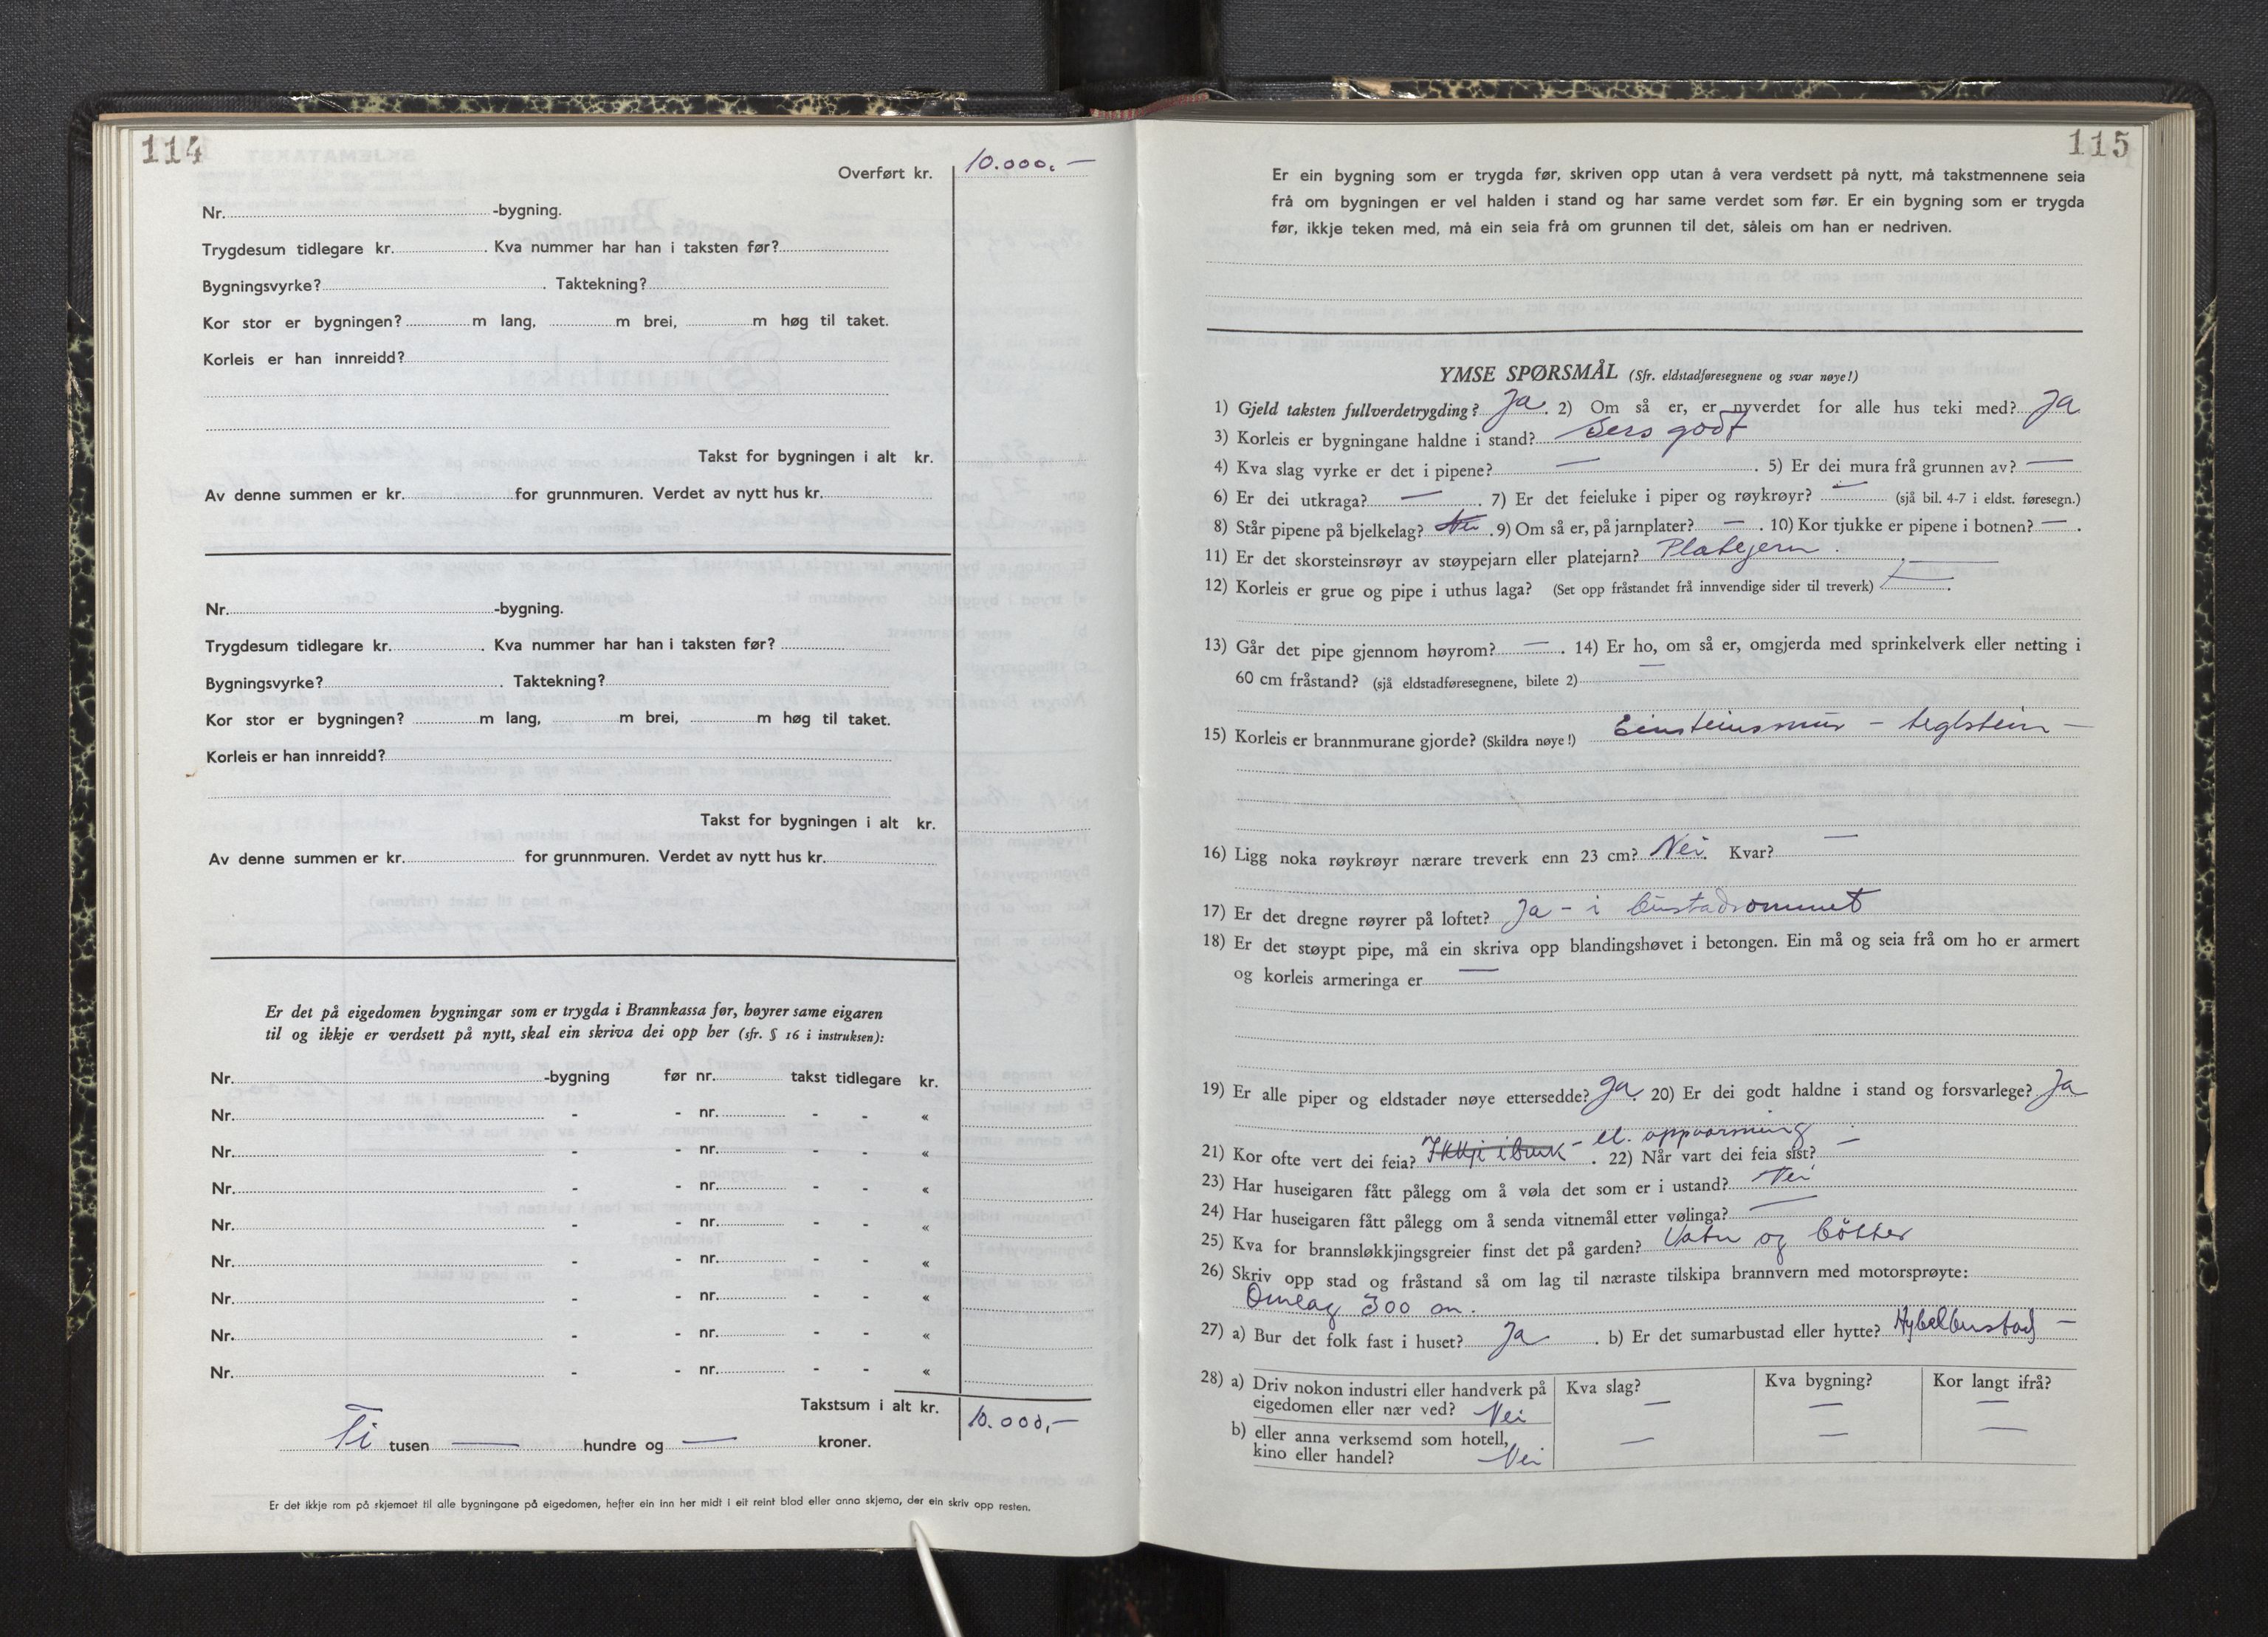 114
Overført kr. 10.000.—
Nr. -bygning.
Trygdesum tidlegare kr. . Kva nummer har han i taksten før?
Bygningsvyrke? . Taktekning?
Kor stor er bygningen? m lang, m brei, m høg til taket.
Korleis er han innreidd?
Takst for bygningen i alt kr.
Av denne summen er kr. for grunnmuren. Verdet av nytt hus kr.
Nr. -bygning.
Trygdesum tidlegare kr. . Kva nummer har han i taksten før?
Bygningsvyrke? . Taktekning?
Kor stor er bygningen? m lang, m brei, m høg til taket.
Korleis er han innreidd?
Takst for bygningen i alt kr.
Av denne summen er kr. for grunnmuren. Verdet av nytt hus kr.
Er det på eigedomen bygningar som er trygda i Brannkassa før, høyrer same eigaren
til og ikkje er verdsett på nytt, skal ein skriva dei opp her (sfr. § 16 i instruksen):
Nr. -bygning før nr. takst tidlegare kr.
Nr. - - nr. - - «
Nr. - - nr. - - «
Nr. - - nr. - - «
Nr. - - nr. - - «
Nr. - - nr. - - «
Nr. - - nr. - - «
Nr. - - nr. - - «
Nr. - - nr. - - «
Takstsum i alt kr. 10.000,—
Ti tusen — hundre og — kroner.
Er det ikkje rom på skjemaet til alle bygningane på eigedomen, hefter ein inn her midt i eit reint blad eller anna skjema, der ein skriv opp resten.
115
Er ein bygning som er trygda før, skriven opp utan å vera verdsett på nytt, må takstmennene seia
frå om bygningen er vel halden i stand og har same verdet som før. Er ein bygning som er trygda
før, ikkje teken med, må ein seia frå om grunnen til det, såleis om han er nedriven.
YMSE SPØRSMÅL (Sfr. eldstadføresegnene og svar nøye!)
1) Gjeld taksten fullverdetrygding? Ja. 2) Om så er, er nyverdet for alle hus teki med? Ja
3) Korleis er bygningane haldne i stand? Sers godt
4) Kva slag vyrke er det i pipene? — . 5) Er dei mura frå grunnen av? —
6) Er dei utkraga? — . 7) Er det feieluke i piper og røykrøyr? — (sjå bil. 4-7 i eldst. føresegn.)
8) Står pipene på bjelkelag? Nei . 9) Om så er, på jarnplater? — . 10) Kor tjukke er pipene i botnen? — .
11) Er det skorsteinsrøyr av støypejarn eller platejarn? Platejern .
12) Korleis er grue og pipe i uthus laga? (Set opp fråstandet frå innvendige sider til treverk) — .
13) Går det pipe gjennom høyrom? — . 14) Er ho, om så er, omgjerda med sprinkelverk eller netting i
60 cm fråstand? (sjå eldstadføresegnene, bilete 2) —
15) Korleis er brannmurane gjorde? (Skildra nøye!) Einsteinsmur – teglstein –
16) Ligg noka røykrøyr nærare treverk enn 23 cm? Nei. Kvar? —
17) Er det dregne røyrer på loftet? Ja – i bustadrommet
18) Er det støypt pipe, må ein skriva opp blandingshøvet i betongen. Ein må og seia frå om ho er armert
og korleis armeringa er —
19) Er alle piper og eldstader nøye ettersedde? Ja. 20) Er dei godt haldne i stand og forsvarlege? Ja
21) Kor ofte vert dei feia? Ikkje i bruk – el. oppvarming . 22) Når vart dei feia sist? —
23) Har huseigaren fått pålegg om å vøla det som er i ustand? Nei
24) Har huseigaren fått pålegg om å senda vitnemål etter vølinga? —
25) Kva for brannsløkkjingsgreier finst det på garden? Vatn og bötter
26) Skriv opp stad og fråstand så om lag til næraste tilskipa brannvern med motorsprøyte:
Omlag 300 m.
27) a) Bur det folk fast i huset? Ja . b) Er det sumarbustad eller hytte? Hybelbustad –
28) a) Driv nokon industri eller handverk på eigedomen eller nær ved? Nei
Kva slag? — Kva bygning? — Kor langt ifrå? —
b) eller anna verksemd som hotell, kino eller handel? Nei — — —